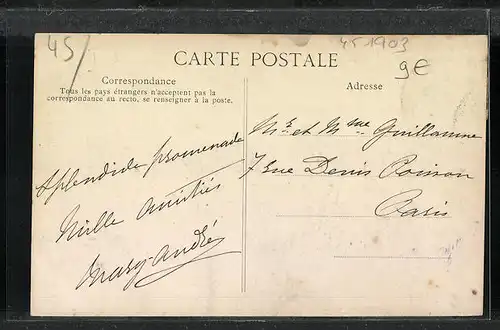 45
45 1903
CARTE POSTALE
9€
Correspondance
Tous les pays étrangers n'acceptent pas la
correspondance au recto, se renseigner à la poste.
Splendide promenade
Mille amitiés
Mary-André
Adresse
Mr et Mme Guillaume
7 rue Denis Poisson
Paris